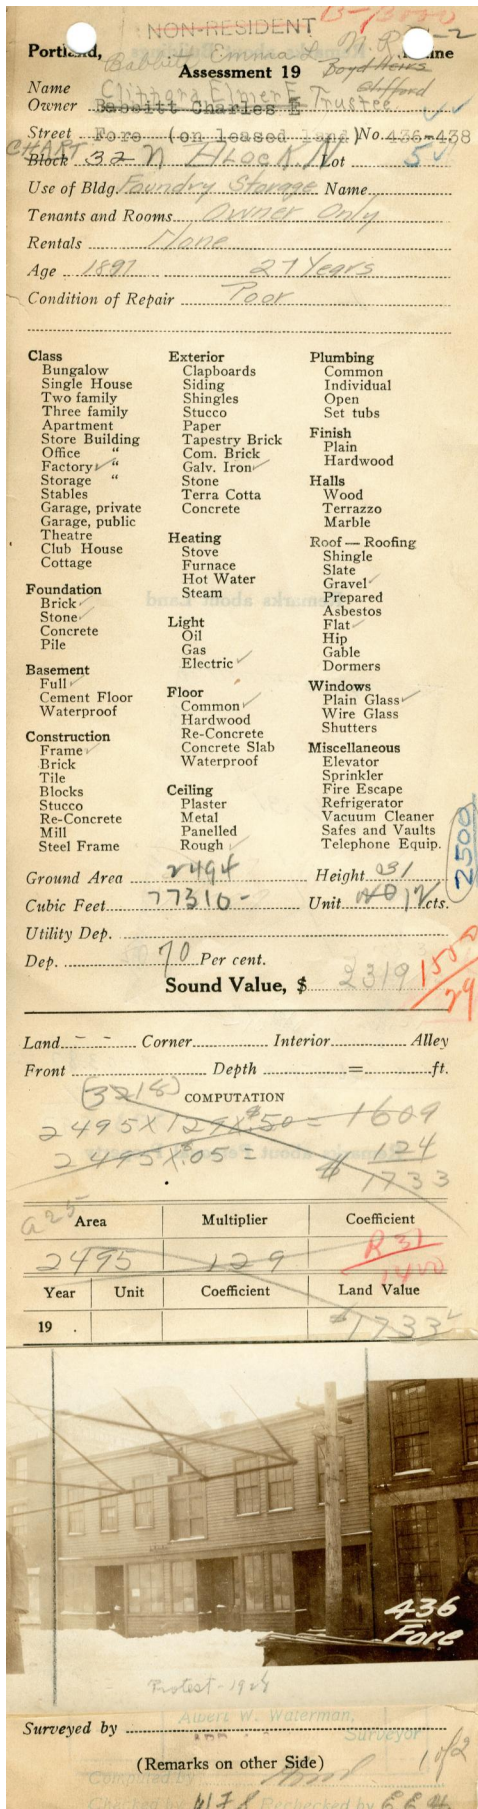 NON-RESIDENT
Portland, Maine
Babbitt Emma L
Assessment 19
Boyd Heirs
Clifford
Name Clifford Elmer E Trustee
Owner Babbitt Charles E
Street Fore (on leased land) No. 436-438
CHART
Block 32 N Block N Lot 5
Use of Bldg. Foundry Storage Name
Tenants and Rooms Owner Only
Rentals None
Age 1897 27 Years
Condition of Repair Poor
Class
Bungalow
Single House
Two family
Three family
Apartment
Store Building
Office "
Factory ✓ "
Storage "
Stables
Garage, private
Garage, public
Theatre
Club House
Cottage
Foundation
Brick ✓
Stone ✓
Concrete
Pile
Basement
Full ✓
Cement Floor
Waterproof
Construction
Frame ✓
Brick
Tile
Blocks
Stucco
Re-Concrete
Mill
Steel Frame
Exterior
Clapboards
Siding
Shingles
Stucco
Paper
Tapestry Brick
Com. Brick
Galv. Iron ✓
Stone
Terra Cotta
Concrete
Heating
Stove
Furnace
Hot Water
Steam
Light
Oil
Gas
Electric ✓
Floor
Common ✓
Hardwood
Re-Concrete
Concrete Slab
Waterproof
Ceiling
Plaster
Metal
Panelled
Rough ✓
Plumbing
Common
Individual
Open
Set tubs
Finish
Plain
Hardwood
Halls
Wood
Terrazzo
Marble
Roof — Roofing
Shingle
Slate
Gravel ✓
Prepared
Asbestos
Flat ✓
Hip
Gable
Dormers
Windows
Plain Glass ✓
Wire Glass
Shutters
Miscellaneous
Elevator
Sprinkler
Fire Escape
Refrigerator
Vacuum Cleaner
Safes and Vaults
Telephone Equip.
2500
Ground Area 2494 Height 31
Cubic Feet 77310- Unit cts.
Utility Dep.
Dep. 70 Per cent.
Sound Value, $ 2319
1500
29
Land - - Corner Interior Alley
Front Depth = ft.
(3218)
COMPUTATION
2495 X 129 X $.50 = 1609
2495 X $.05 = 124
$ 1733
a 25
Area Multiplier Coefficient
2495 129
R 31
1400
Year Unit Coefficient Land Value
19 . $1733
436
Fore
Protest-1924
Albert W. Waterman,
Surveyed by Surveyor
(Remarks on other Side)
1 of 2
Computed by
Checked by WFS Rechecked by